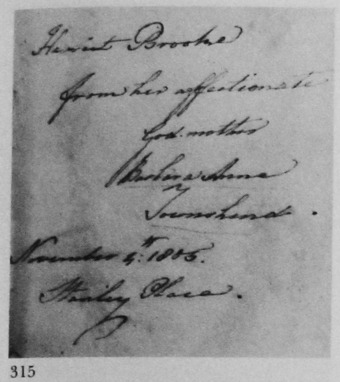 Harriet Brooke
from her affectionate
God-mother
Barbara Anne
Townshend.
November 4th. 1805.
Stanley Place.
315